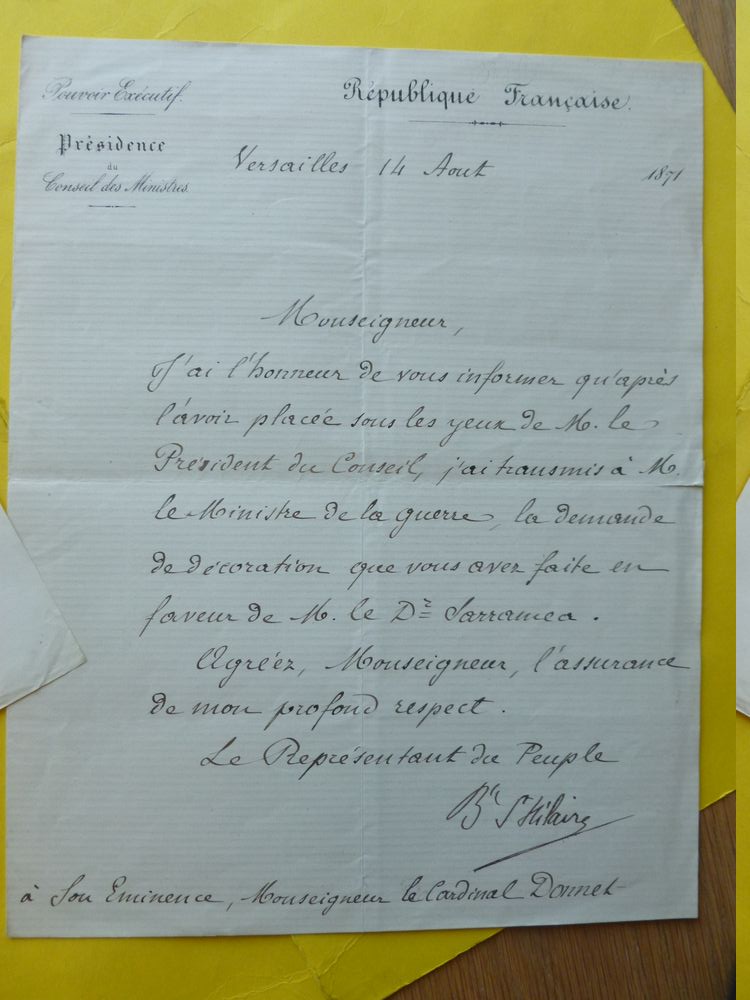 Pouvoir Exécutif.
République Française.
Présidence
du
Conseil des Ministres.
Versailles 14 Aout 1871
Monseigneur,
J'ai l'honneur de vous informer qu'après
l'avoir placée sous les yeux de M. le
Président du Conseil, j'ai transmis à M.
le Ministre de la guerre, la demande
de décoration que vous avez faite en
faveur de M. le Dr Sarramea.
Agréez, Monseigneur, l'assurance
de mon profond respect.
Le Représentant du Peuple
By St Hilaire
à Son Eminence, Monseigneur le Cardinal Donnet